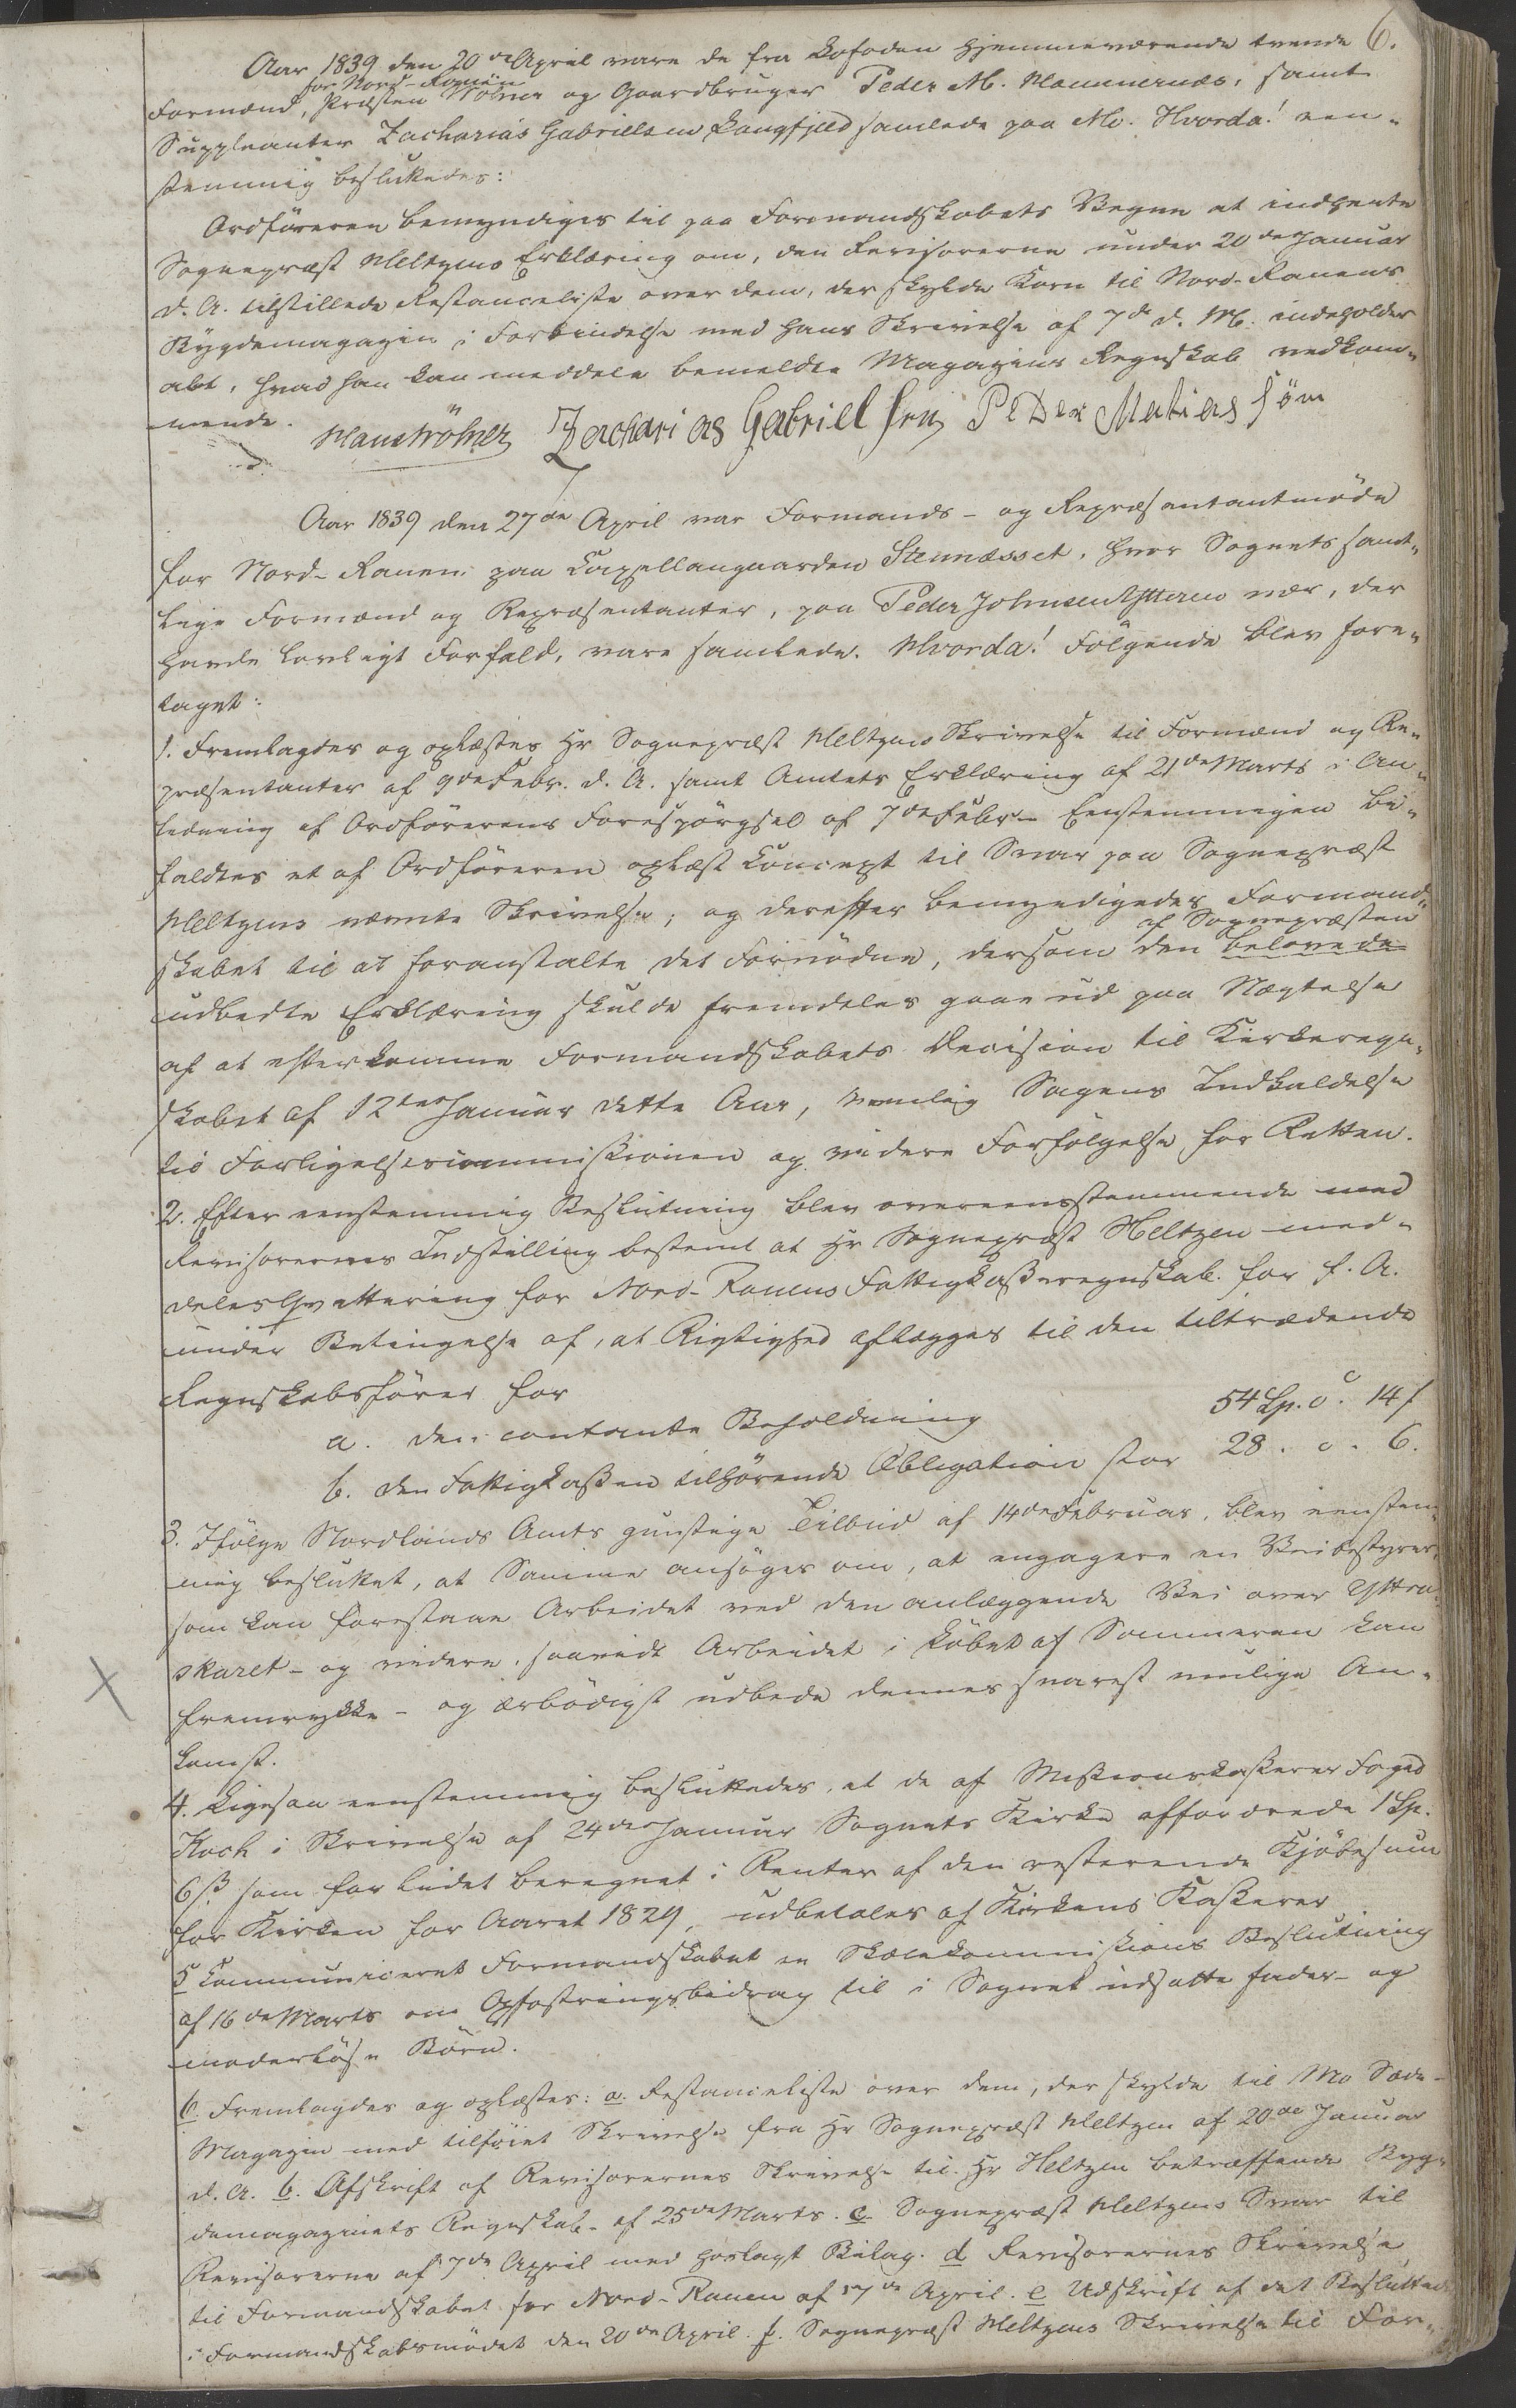 6.
Aar 1839 den 20de April vare de fra Lofoden hjemmeværende trende
for Nord-Ranen
Formænd, Præsten Wölner og Gaardbruger Peder M. Hammernæs, samt
Suppleanten Zacharias Gabrielsen Langfjeld samlede paa Mo. Hvorda! een-
stemmig besluttedes:
Ordföreren bemyndiges til paa Formandskabets Vegne at indhente
Sognepræst Heltzens Erklæring om, den Revisorerne under 20de Januar
d. A. tilstillede Restanceliste over dem, der skylde Korn til Nord-Ranens
Bygdemagazin i Forbindelse med hans Skrivelse af 7de d. M. indeholder
alt, hvad han kan meddele bemeldte Magazins Regnskab vedkom-
mende.
Zacharias Gabriel sen Peder Matias søn
Aar 1839 den 27de April var Formands- og Repræsentantmöde
for Nord-Ranen paa Capellangaarden Stennæsset, hvor Sognets samt-
lige Formænd og Repræsentanter, paa Peder Johnsen Ytteren nær, der
havde lovligt Forfald, vare samlede. Hvorda! Fölgende blev fore-
taget:
1. Fremlagdes og oplæstes Hr Sognepræst Heltzens Skrivelse til Formænd og Re-
præsentanter af 9de Febr. d. A. samt Amtets Erklæring af 21de Marts i An-
ledning af Ordförerens Forespörgsel af 7de Febr. Eenstemmigen bi-
faldtes et af Ordföreren oplæst Concept til Svar paa Sognepræst
Heltzens nævnte Skrivelse; og derefter bemyndigedes Formand-
af Sognepræsten
skabet til at foranstalte det Fornödne, dersom den belovede
udbedte Erklæring skulde fremdeles gaae ud paa Nægtelse
af at efterkomme Formandskabets Decision til Kirkeregn-
skabet af 12te Januar dette Aar, nemlig Sagens Indkaldelse
til Forligelsescommissionen og videre Forfölgelse for Retten.
2. Efter eenstemmig Beslutning blev overeensstemmende med
Revisorernes Indstilling bestemt at Hr Sognepræst Heltzen med-
deles Qvittering for Nord-Ranens Fattigkasseregnskab for f. A.
under Betingelse af, at Rigtighed aflægges til den tiltrædende
Regnskabsförer for
a. den contante Beholdning 54 Sp. 0. 14 s
b. den Fattigkassen tilhörende Obligation stor 28. 0. 6.
3. Ifölge Nordlands Amts gunstige Tilbud af 14de Februar, blev eenstem-
mig besluttet, at Samme ansöges om, at engagere en Veibestyrer,
som kan forestaae Arbeidet ved den anlæggende Vei over Yttra-
skaret - og videre, saavidt Arbeidet i Löbet af Sommeren kan
fremrykke - og ærbödigst udbede dennes snarest mulige An-
komst.
4. Ligesaa eenstemmig besluttedes, at de af Missionskasserer Foged
Koch i Skrivelse af 24de Januar Sognets Kirke affordrede 1 Sp.
6 ß som for lidet beregnet i Renter af den resterende Kjöbesum
for Kirken for Aaret 1829, udbetales af Kirkens Kasserer
5 Communiceret Formandskabet en Skolekommissions Beslutning
af 16de Marts om Opfostringsbidrag til i Sognet udsatte fader- og
moderlöse Börn.
6. Fremlagdes og oplæstes: a. Restanceliste over dem, der skylde til Mo Sæde-
Magazin med tilföiet Skrivelse fra Hr Sognepræst Heltzen af 20de Januar
d. A. b. Afskrift af Revisorernes Skrivelse til Hr Heltzen betræffende Byg-
demagazinets Regnskab af 25de Marts. c. Sognepræst Heltzens Svar til
Revisorerne af 7de April med hoslagt Bilag. d Revisorernes Skrivelse
til Formandskabet for Nord-Ranen af 17de April. e Udskrift af det Besluttede
i Formandskabsmödet den 20de April. f. Sognepræst Heltzens Skrivelse til For-